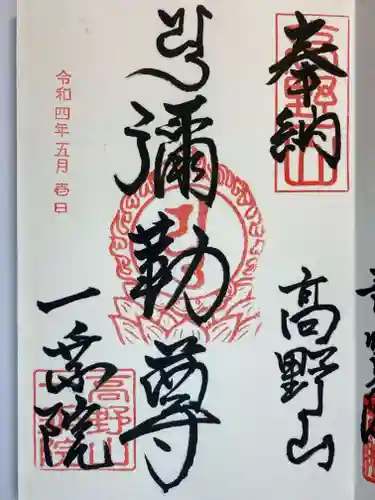 奉納
高野山
高野山
彌勒尊
令和四年五月壱日
一乘院
高野山